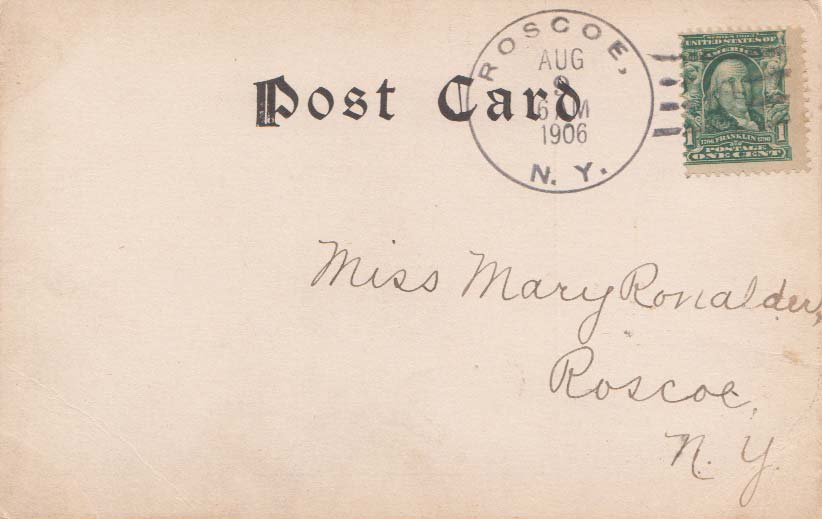 ROSCOE,
AUG
1906
N. Y.
Post Card
SERIES 1902
UNITED STATES OF
AMERICA
1706 FRANKLIN 1790
1 POSTAGE 1
ONE CENT
Miss Mary Ronalder,
Roscoe,
N. Y.